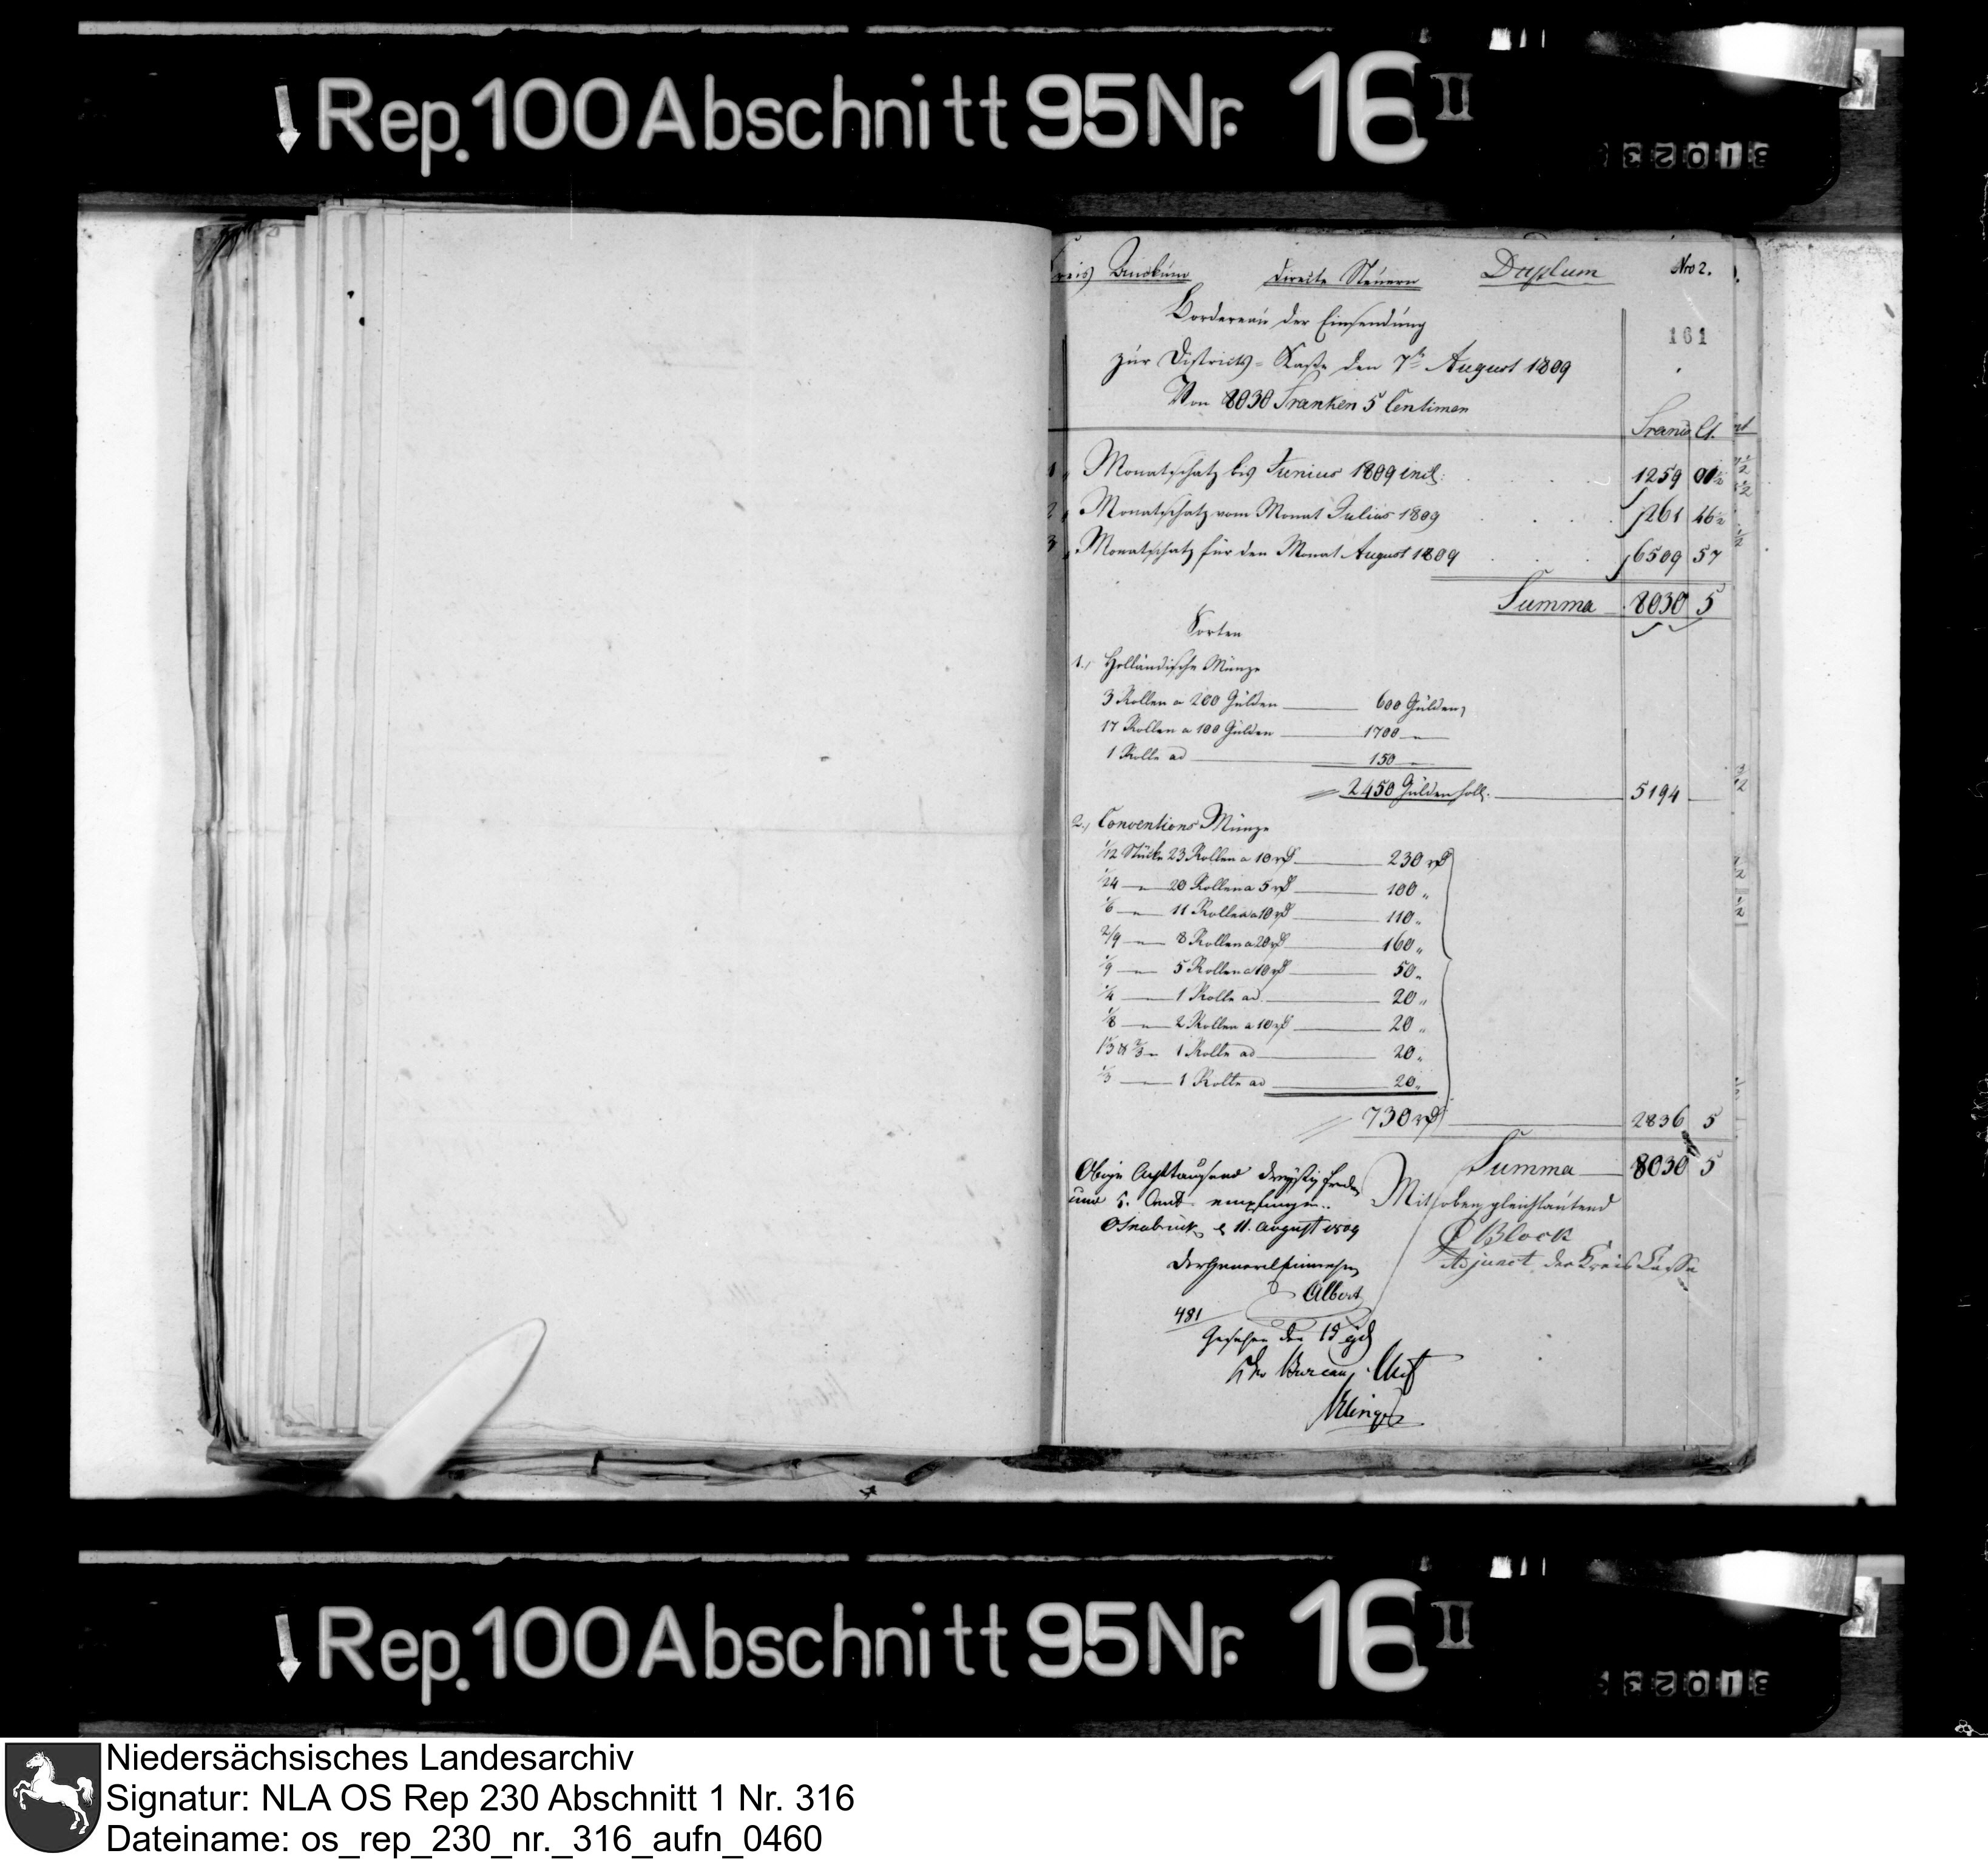 Rep. 100 Abschnitt 95 Nr. 16 II
Kreis Directe Steuern Duplum Nro 2.
Bordereau der Einsendung
161
zur Districts-Kasse den 7t August 1809
Von 8030 Franken 5 Centimen
Franc Ct.
1, Monatschatz bis Junius 1809 incl: 1259 01½
2, Monatschatz vom Monat Julius 1809 261 46½
3, Monatschatz für den Monat August 1809 6509 57
Summa 8030 5
Sorten
1., Holländische Münze
3 Rollen a 200 Gulden 600 Gulden,
17 Rollen a 100 Gulden 1700 "
1 Rolle ad 150 "
2450 Gulden holl. 5194
2., Conventions Münze
1/12 Stücke 23 Rollen a 10 rt 230 rt
1/24 " 20 Rollen a 5 rt 100 "
1/6 " 11 Rollen a 10 rt 110 "
2/9 " 8 Rollen a 20 rt 160 "
1/9 " 5 Rollen a 10 rt 50 "
1/4 " 1 Rolle ad 20 "
1/8 " 2 Rollen a 10 rt 20 "
1/3 & 2/3 " 1 Rolle ad 20 "
1/3 " 1 Rolle ad 20 "
730 rt 2836 5
Summa 8030 5
Obige Achttausend dreyßig
und 5. Cent empfangen.
Osnabrück d 11. August 1809
Der General Einnehmer
Albert
Mit oben gleichlautend
Block
Adjunct der Kreis Casse
481
Gesehen den
Der Bureau Chef
Rep. 100 Abschnitt 95 Nr. 16 II
Niedersächsisches Landesarchiv
Signatur: NLA OS Rep 230 Abschnitt 1 Nr. 316
Dateiname: os_rep_230_nr._316_aufn_0460